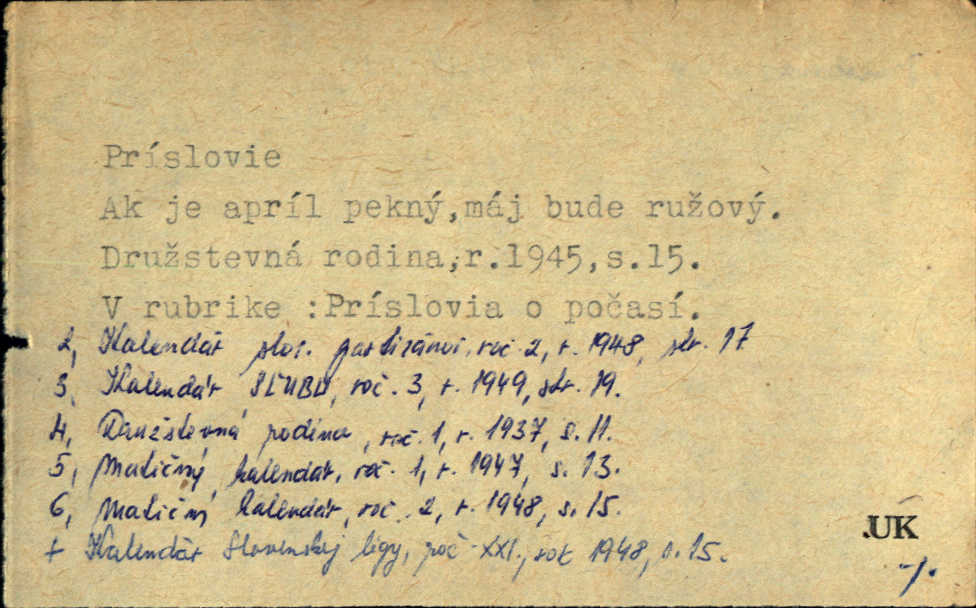 Príslovie
Ak je apríl pekný,máj bude ružový.
Družstevná rodina,r.1945,s.15.
V rubrike :Príslovia o počasí.
2, Kalendár slov. partizánov, roč. 2, r. 1948, str. 17
3, Kalendár SĽUBU, roč. 3, r. 1949, str. 19.
4, Družstevná rodina, roč. 1, r. 1937, s. 11.
5, Matičný kalendár, roč. 1, r. 1947, s. 13.
6, Matičný kalendár, roč. 2, r. 1948, s. 15.
+ Kalendár Slovenskej ligy, roč. XXI., rok 1948, s. 15.
.ÚK